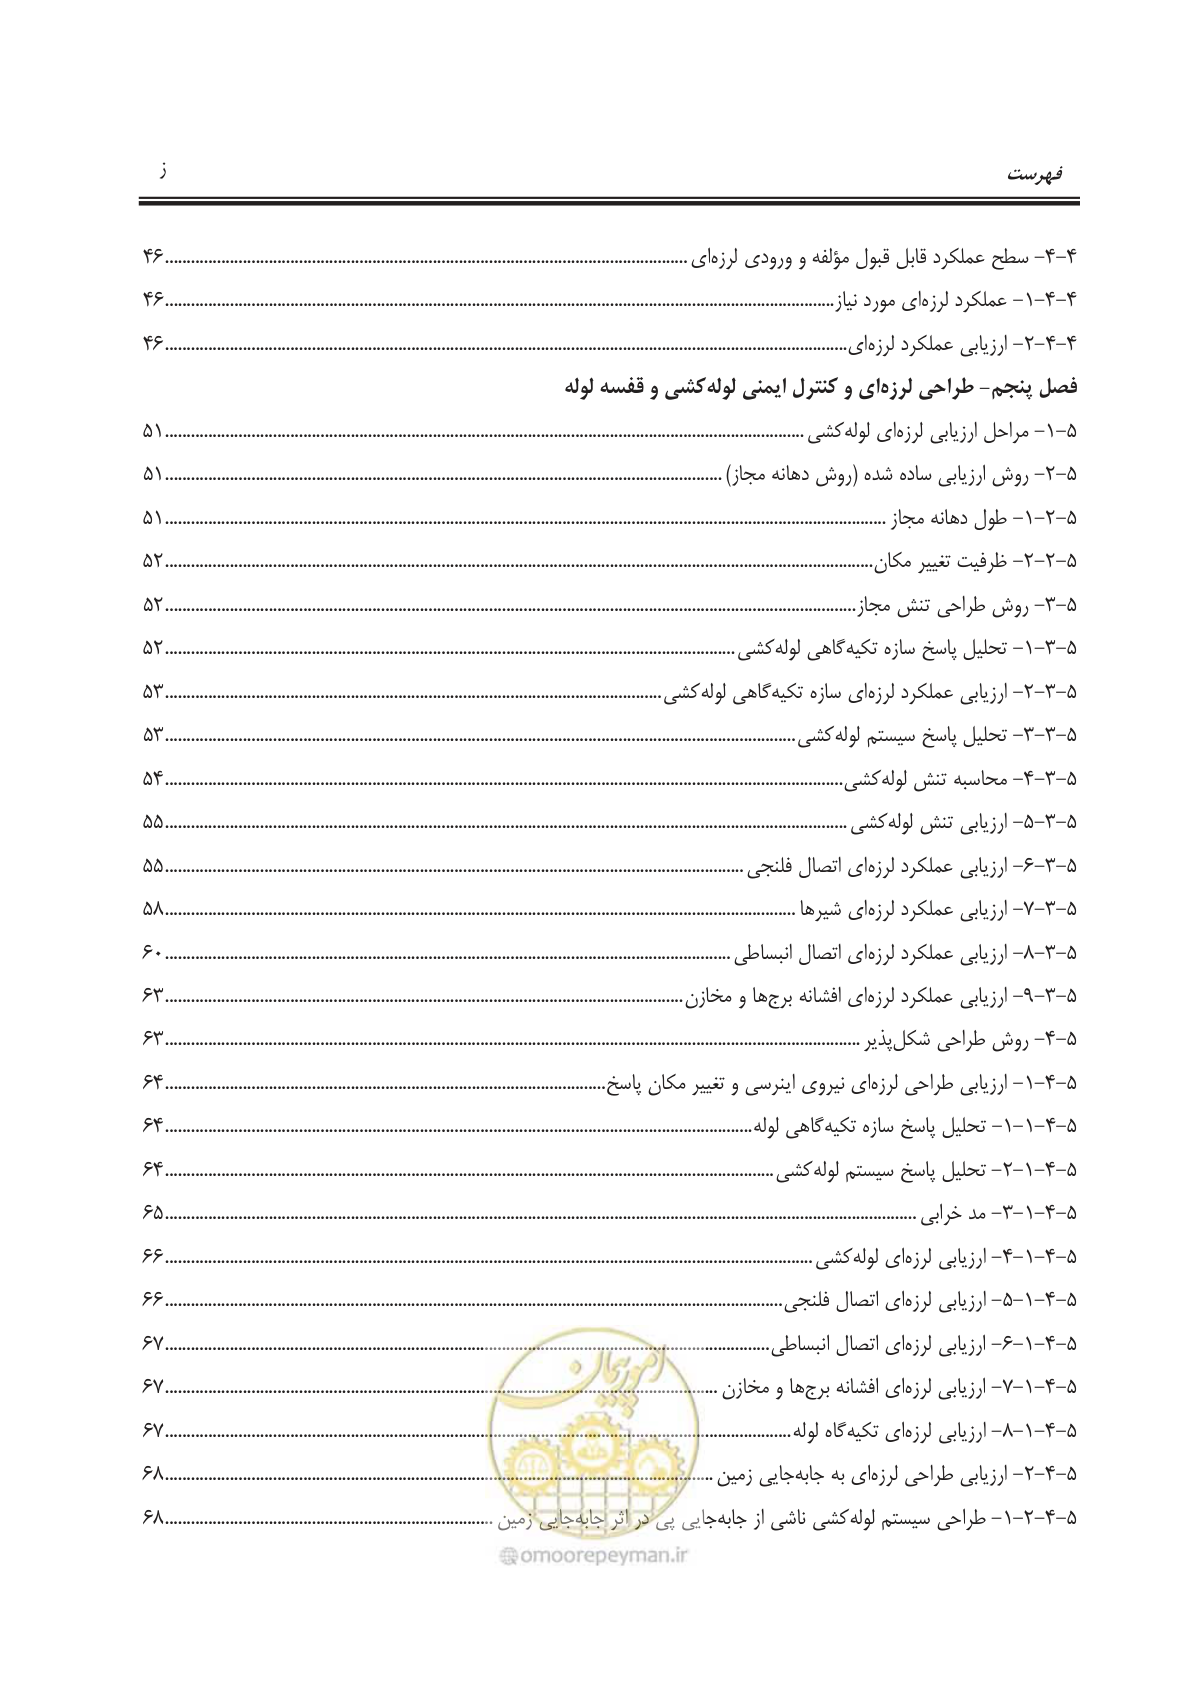 فهرست
ز
۴-۴- سطح عملکرد قابل قبول مؤلفه و ورودی لرزه‌ای ........ ۴۶
۴-۴-۱- عملکرد لرزه‌ای مورد نیاز ........ ۴۶
۴-۴-۲- ارزیابی عملکرد لرزه‌ای ........ ۴۶
فصل پنجم- طراحی لرزه‌ای و کنترل ایمنی لوله‌کشی و قفسه لوله
۵-۱- مراحل ارزیابی لرزه‌ای لوله‌کشی ........ ۵۱
۵-۲- روش ارزیابی ساده شده (روش دهانه مجاز) ........ ۵۱
۵-۲-۱- طول دهانه مجاز ........ ۵۱
۵-۲-۲- ظرفیت تغییر مکان ........ ۵۲
۵-۳- روش طراحی تنش مجاز ........ ۵۲
۵-۳-۱- تحلیل پاسخ سازه تکیه‌گاهی لوله‌کشی ........ ۵۲
۵-۳-۲- ارزیابی عملکرد لرزه‌ای سازه تکیه‌گاهی لوله‌کشی ........ ۵۳
۵-۳-۳- تحلیل پاسخ سیستم لوله‌کشی ........ ۵۳
۵-۳-۴- محاسبه تنش لوله‌کشی ........ ۵۴
۵-۳-۵- ارزیابی تنش لوله‌کشی ........ ۵۵
۵-۳-۶- ارزیابی عملکرد لرزه‌ای اتصال فلنجی ........ ۵۵
۵-۳-۷- ارزیابی عملکرد لرزه‌ای شیرها ........ ۵۸
۵-۳-۸- ارزیابی عملکرد لرزه‌ای اتصال انبساطی ........ ۶۰
۵-۳-۹- ارزیابی عملکرد لرزه‌ای افشانه برج‌ها و مخازن ........ ۶۳
۵-۴- روش طراحی شکل‌پذیر ........ ۶۳
۵-۴-۱- ارزیابی طراحی لرزه‌ای نیروی اینرسی و تغییر مکان پاسخ ........ ۶۴
۵-۴-۱-۱- تحلیل پاسخ سازه تکیه‌گاهی لوله ........ ۶۴
۵-۴-۱-۲- تحلیل پاسخ سیستم لوله‌کشی ........ ۶۴
۵-۴-۱-۳- مد خرابی ........ ۶۵
۵-۴-۱-۴- ارزیابی لرزه‌ای لوله‌کشی ........ ۶۶
۵-۴-۱-۵- ارزیابی لرزه‌ای اتصال فلنجی ........ ۶۶
۵-۴-۱-۶- ارزیابی لرزه‌ای اتصال انبساطی ........ ۶۷
۵-۴-۱-۷- ارزیابی لرزه‌ای افشانه برج‌ها و مخازن ........ ۶۷
۵-۴-۱-۸- ارزیابی لرزه‌ای تکیه‌گاه لوله ........ ۶۷
۵-۴-۲- ارزیابی طراحی لرزه‌ای به جابه‌جایی زمین ........ ۶۸
۵-۴-۲-۱- طراحی سیستم لوله‌کشی ناشی از جابه‌جایی پی در اثر جابه‌جایی زمین ........ ۶۸
امور پیمان
@omoorepeyman.ir